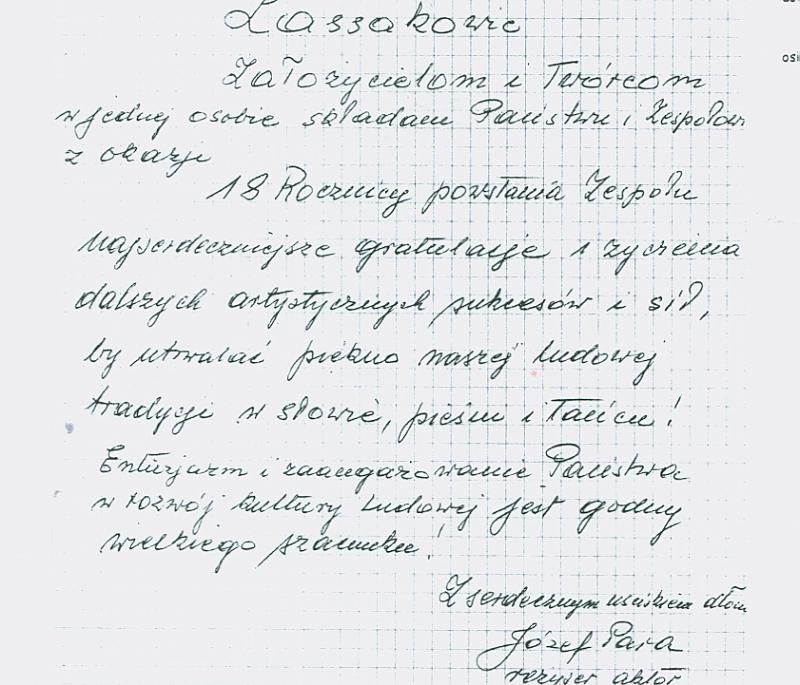 Lassakowie
Założycielom i Twórcom
w jednej osobie składam Państwu i Zespołowi
z okazji
18 Rocznicy powstania Zespołu
najserdeczniejsze gratulacje i życzenia
dalszych artystycznych sukcesów i sił,
by utrwalać piękno naszej ludowej
tradycji w słowie, pieśni i tańcu!
Entuzjazm i zaangażowanie Państwa
w rozwój kultury ludowej jest godny
wielkiego szacunku!
Z serdecznym uściskiem dłoni
Józef Para
reżyser aktor